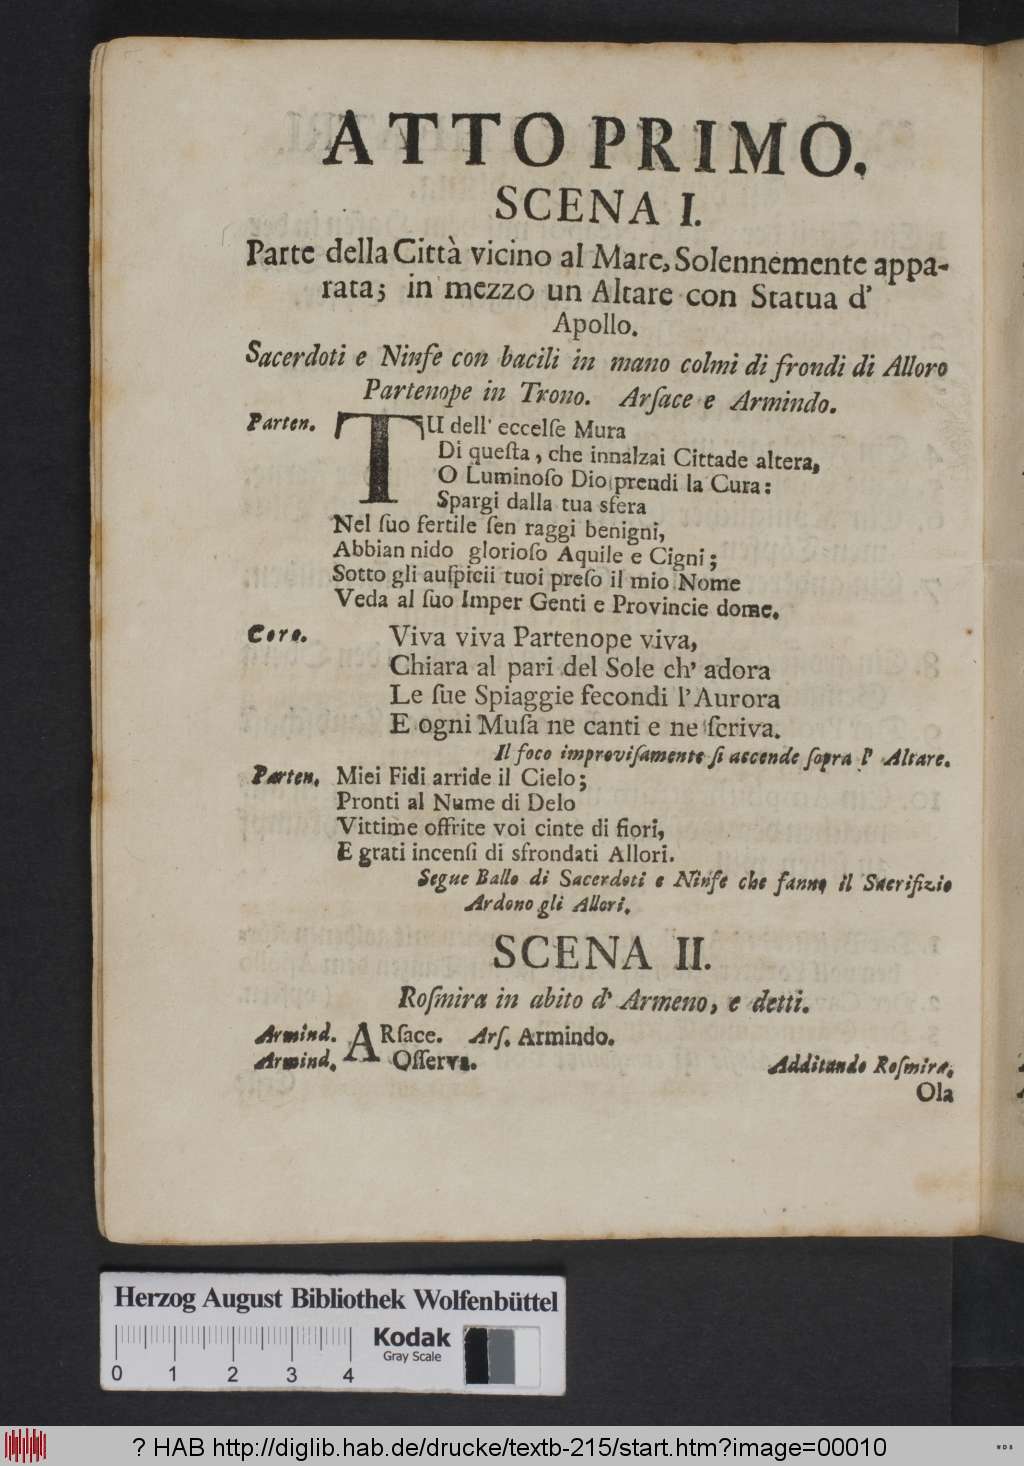 ATTO PRIMO.
SCENA I.
Parte della Città vicino al Mare, Solennemente appa-
rata; in mezzo un Altare con Statua d'
Apollo.
Sacerdoti e Ninfe con bacili in mano colmi di frondi di Alloro
Partenope in Trono. Arſace e Armindo.
Parten. TU dell' eccelſe Mura
Di queſta, che innalzai Cittade altera,
O Luminoſo Dio prendi la Cura:
Spargi dalla tua sfera
Nel ſuo fertile ſen raggi benigni,
Abbian nido glorioſo Aquile e Cigni;
Sotto gli auſpicii tuoi preſo il mio Nome
Veda al ſuo Imper Genti e Provincie dome.
Coro. Viva viva Partenope viva,
Chiara al pari del Sole ch' adora
Le ſue Spiaggie fecondi l'Aurora
E ogni Muſa ne canti e ne ſcriva.
Il foco improviſamente ſi accende ſopra l' Altare.
Parten. Miei Fidi arride il Cielo;
Pronti al Nume di Delo
Vittime offrite voi cinte di fiori,
E grati incenſi di sfrondati Allori.
Segue Ballo di Sacerdoti e Ninfe che fanno il Sacrifizio
Ardono gli Allori.
SCENA II.
Roſmira in abito d' Armeno, e detti.
Armind. ARſace. Arſ. Armindo.
Armind. Oſſerva. Additando Roſmira.
Ola
Herzog August Bibliothek Wolfenbüttel
Kodak
Gray Scale
0 1 2 3 4
? HAB http://diglib.hab.de/drucke/textb-215/start.htm?image=00010